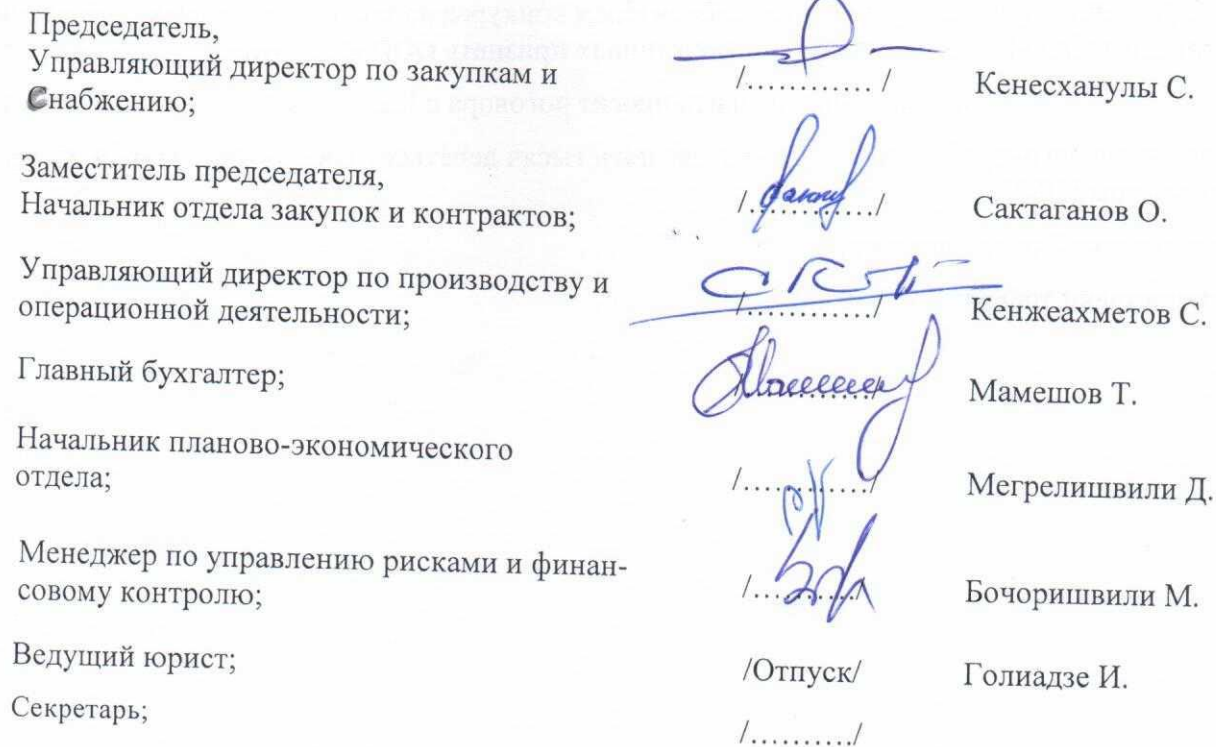 Председатель,
Управляющий директор по закупкам и
Снабжению;
/............ / Кенесханулы С.
Заместитель председателя,
Начальник отдела закупок и контрактов;
/............/ Сактаганов О.
Управляющий директор по производству и
операционной деятельности;
/............/ Кенжеахметов С.
Главный бухгалтер;
Мамешов Т.
Начальник планово-экономического
отдела;
/............/ Мегрелишвили Д.
Менеджер по управлению рисками и финан-
совому контролю;
/........../ Бочоришвили М.
Ведущий юрист;
/Отпуск/ Голиадзе И.
Секретарь;
/........../